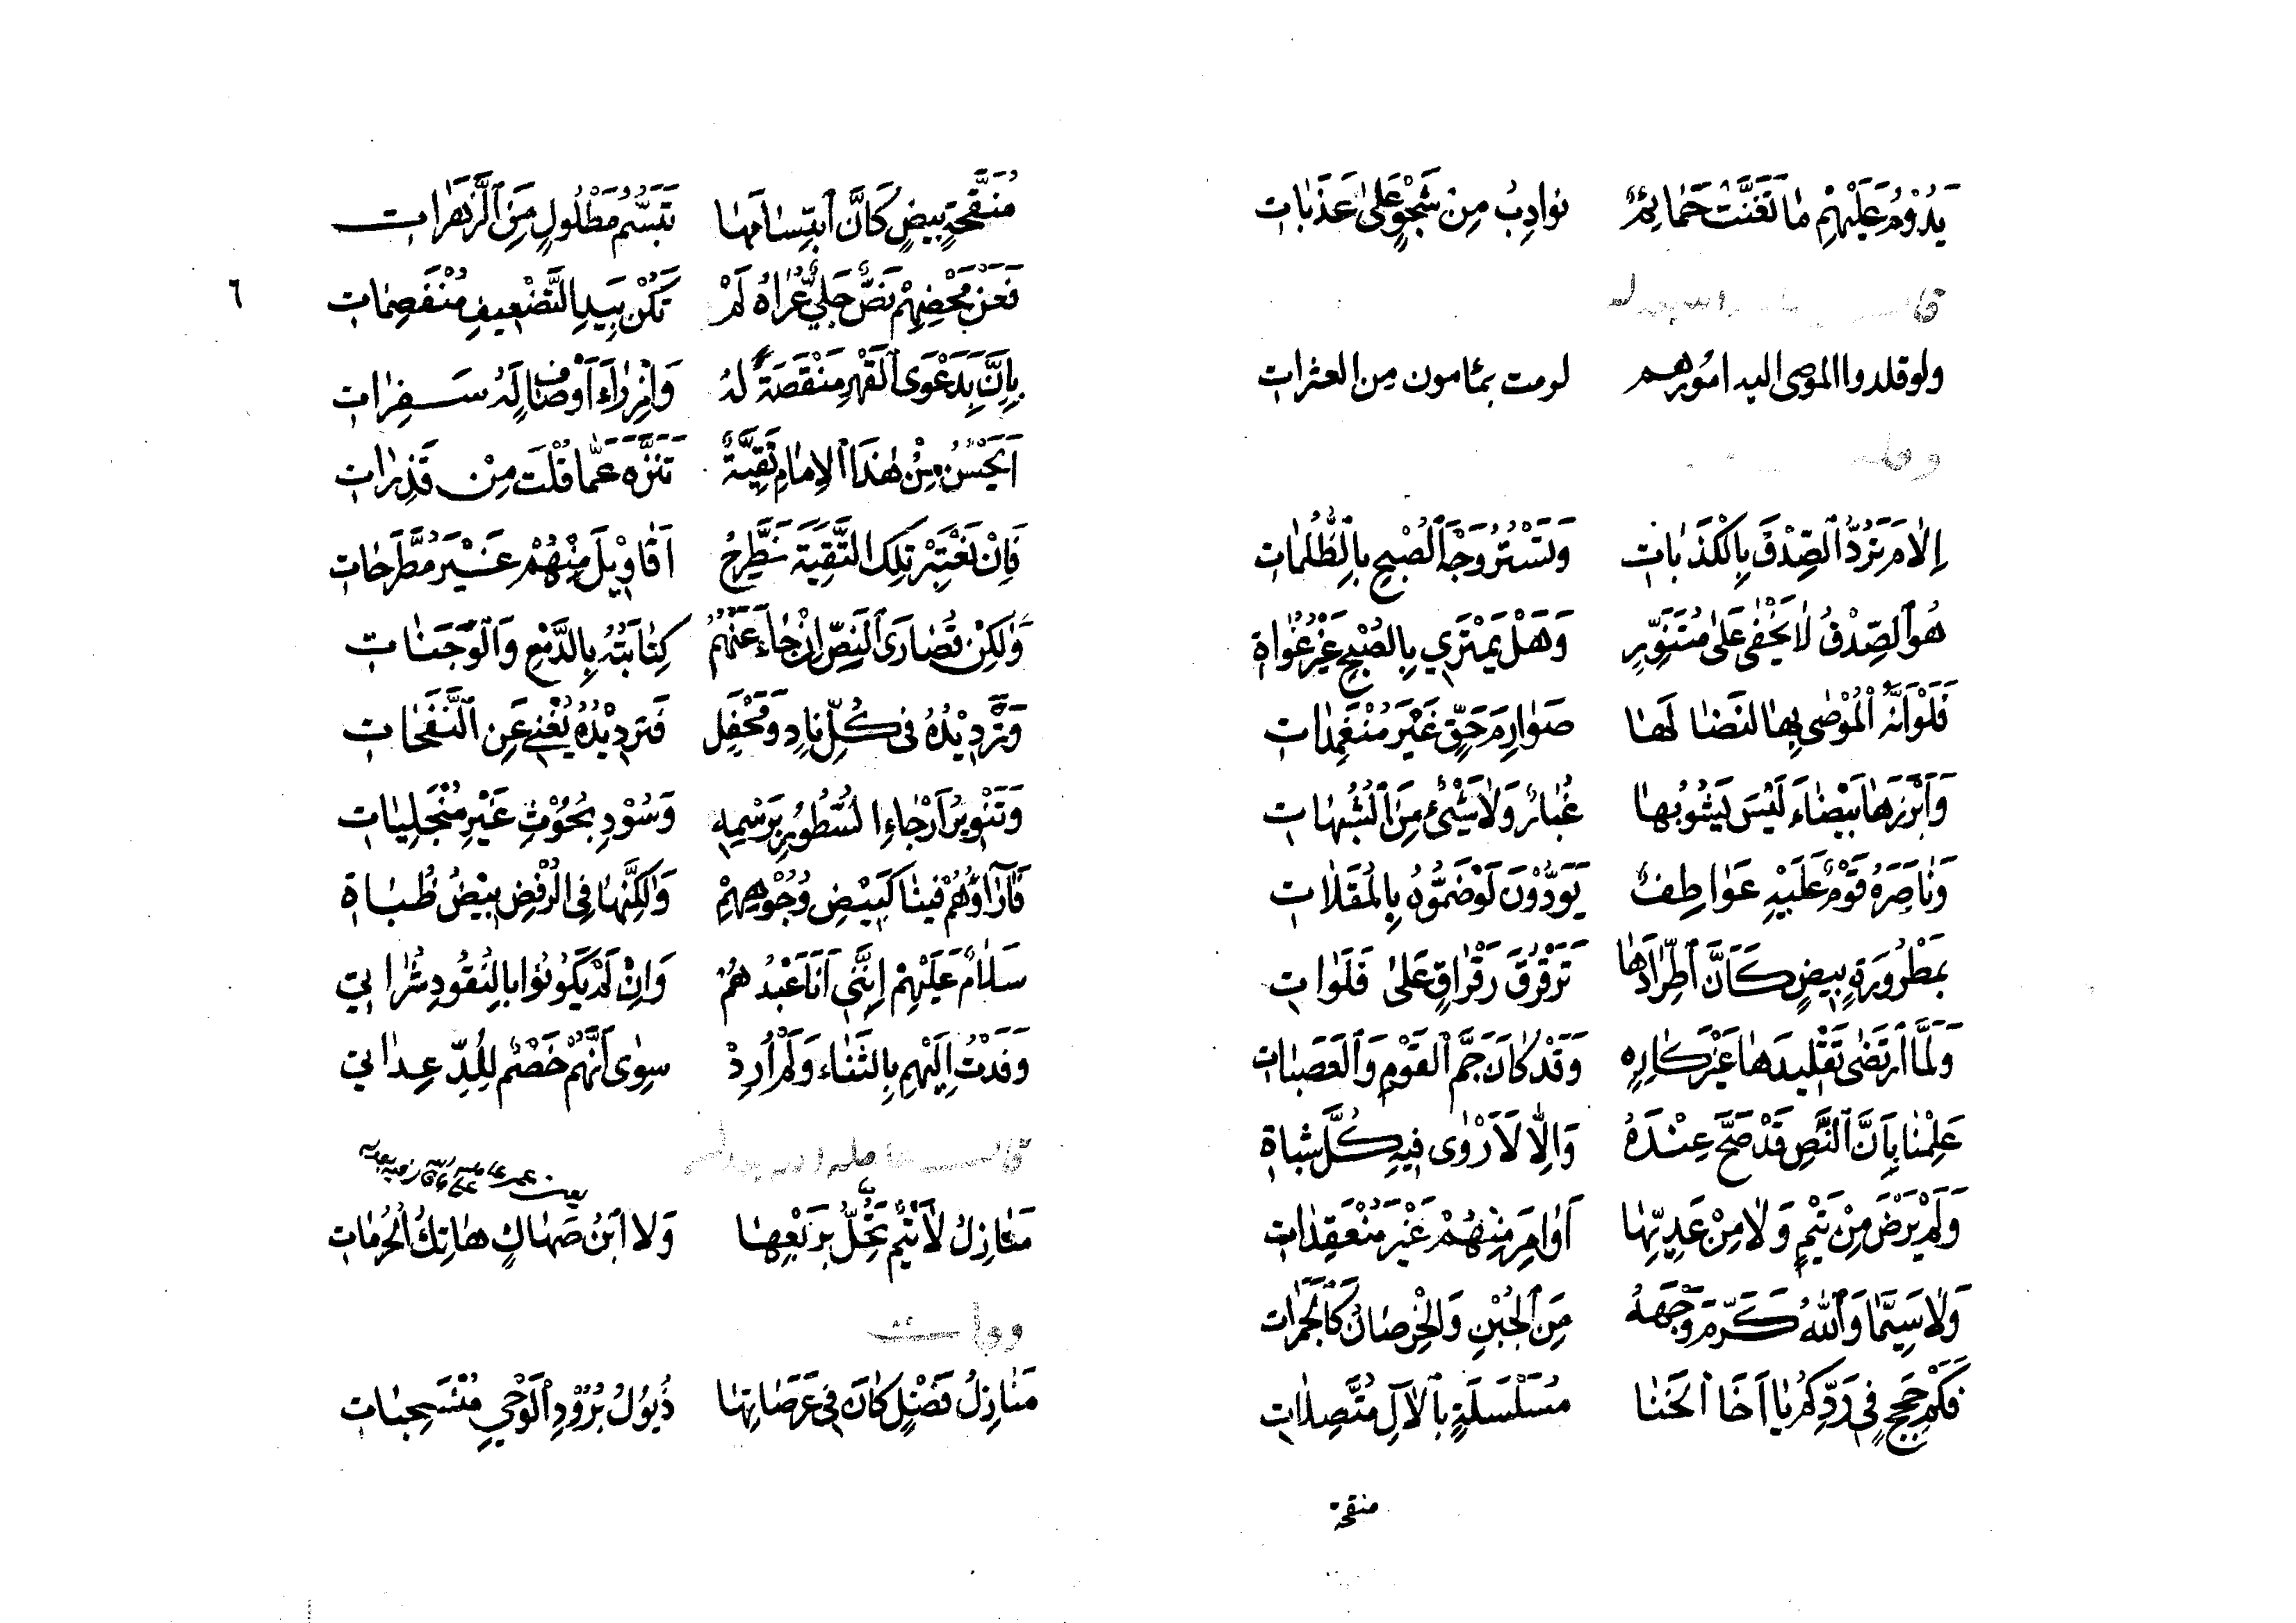 يَدُوْمُ عَلَيْهِمْ مَا تَغَنَّتْ حَمَائِمٌ نَوادِبُ مِنْ شَجْوٍ عَلىٰ عَذَبَاتِ
قال
ولو قلدوا الموصى اليه امورهم لزمت بمامون من العثرات
وقلت
اِلٰامَ تَرُدُّ ٱلصِّدْقَ بِالْكَذَبَاتِ وَتَسْتُرُ وَجْهَ ٱلصُّبْحِ بِالظُّلُمَاتِ
هُوَ ٱلصِّدْقُ لَا يَخْفىٰ عَلىٰ مُتَنَوِّرٍ وَهَلْ يَمْتَرِي بِالصُّبْحِ غَيْرُ غُوَاةِ
فَلَوْ اَنَّهُ الْمُوْصٰى بِهَا لَنَضَا لَهَا صَوَارِمَ حَقٍّ غَيْرَ مُنْغَمِدَاتِ
وَاَبْرَزَهَا بَيْضَاءَ لَيْسَ يَشُوبُهَا غُبَارٌ وَلَا شَيْءٌ مِنَ ٱلشُّبُهَاتِ
وَنَاصِرُهُ قَوْمٌ عَلَيْهِ عَوَاطِفٌ يَوَدُّوْنَ لَوْ ضَمُّوْهُ بِالْمُقَلَاتِ
بِمَطْرُورَةٍ بِيضٍ كَأَنَّ ٱطِّرَادَهَا تَرَقْرُقُ رَقْرَاقٍ عَلىٰ فَلَوَاتِ
وَلَمَّا ٱرْتَضىٰ تَقْلِيدَهَا غَيْرَ كَارِهٍ وَقَدْ كَانَ جَمَّ ٱلْقَوْمِ وَٱلْعَصَبَاتِ
عَلِمْنَا بِاَنَّ ٱلنَّصَّ قَدْ صَحَّ عِنْدَهُ وَاِلَّا لَاَرْوٰى فِيهِ كُلَّ شَبَاةِ
وَلَمْ يَرْضَ مِنْ تَيْمٍ وَلَا مِنْ عَدِيِّهَا اَوَامِرَ مِنْهُمْ غَيْرَ مُنْعَقِدَاتِ
وَلَا سِيَّمَا وَٱللّٰهُ كَرَّمَ وَجْهَهُ مِنَ ٱلْجُبْنِ وَالْخِرْصَانُ كَالْجَمَرَاتِ
فَكَمْ حُجَجٍ فِي رَدِّكُمْ يَا اَخَا ٱلْخَنَا مُسَلْسَلَةٍ بِٱلْآلِ مُتَّصِلَاتِ
منقحة
مُنَقَّحَةٍ بِيضٍ كَأَنَّ ٱبْتِسَامَهَا تَبَسُّمُ مَطْلُولٍ مِنَ ٱلزَّهَرَاتِ
٦
فَعَنْ مَحْضِهِمْ نَصٌّ جَلِيٌّ عُرَاهُ لَمْ تَكُنْ بِيَدِ التَّضْعِيفِ مُنْفَصِمَاتِ
بِاِنَّ بِدَعْوَى ٱلْقَهْرِ مَنْقَصَةٌ لَهُ وَاِزْرَاءَ اَوْصَافٍ لَهُ سَفِرَاتِ
اَيَحْسُنُ مِنْ هٰذَا ٱلْاِمَامِ تَقِيَّةٌ تَنَزَّهَ عَمَّا قُلْتَ مِنْ قَذِرَاتِ
فَاِنْ تَعْتَبِرْ تِلْكَ التَّقِيَّةَ تَطَّرِحْ اَقَاوِيْلَ مِنْهُمْ غَيْرَ مُطَّرَحَاتِ
وَلٰكِنْ قُصَارَى ٱلنَّصِّ اِنْ جَاءَ عَنْهُمُ كِتَابَتُهُ بِالدَّمْعِ وَالْوَجَنَاتِ
وَتَرْدِيْدُهُ فِى كُلِّ نَادٍ وَمَحْفِلٍ فَتَرْدِيْدُهُ يُغْنِي عَنِ ٱلنَّفَحَاتِ
وَتَنْوِيرُ اَرْجَاءِ السُّطُورِ بِرَسْمِهِ وَسُوْدِ بُحُوْثٍ غَيْرِ مُنْجَلِيَاتِ
فَآرَاؤُهُمْ فِينَا كَبِيْضِ وُجُوْهِهِمْ وَلٰكِنَّهَا فِي الرَّفْضِ بِيْضُ ظُبَاةِ
سَلَامٌ عَلَيْهِمْ اِنَّنِي اَنَا عَبْدُهُمْ وَاِنْ لَمْ يَكُونُوا بِالنُّقُودِ شُرَاتِي
وَفَدْتُ اِلَيْهِمْ بِالثَّنَاءِ وَلَمْ اُرِدْ سِوٰى اَنَّهُمْ خَصْمٌ لِلُدِّ عِدَاتِي
قال
مَنَازِلُ لَا تَيْمٌ تَحُلُّ بِرَبْعِهَا وَلَا ابْنُ صَهَاكٍ هَاتِكُ الْحُرُمَاتِ
وقلت
مَنَازِلُ فَضْلٍ كَانَ فِي عَرَصَاتِهَا ذُيُوْلُ بُرُوْدِ ٱلْوَحْيِ مُنْسَحِبَاتِ